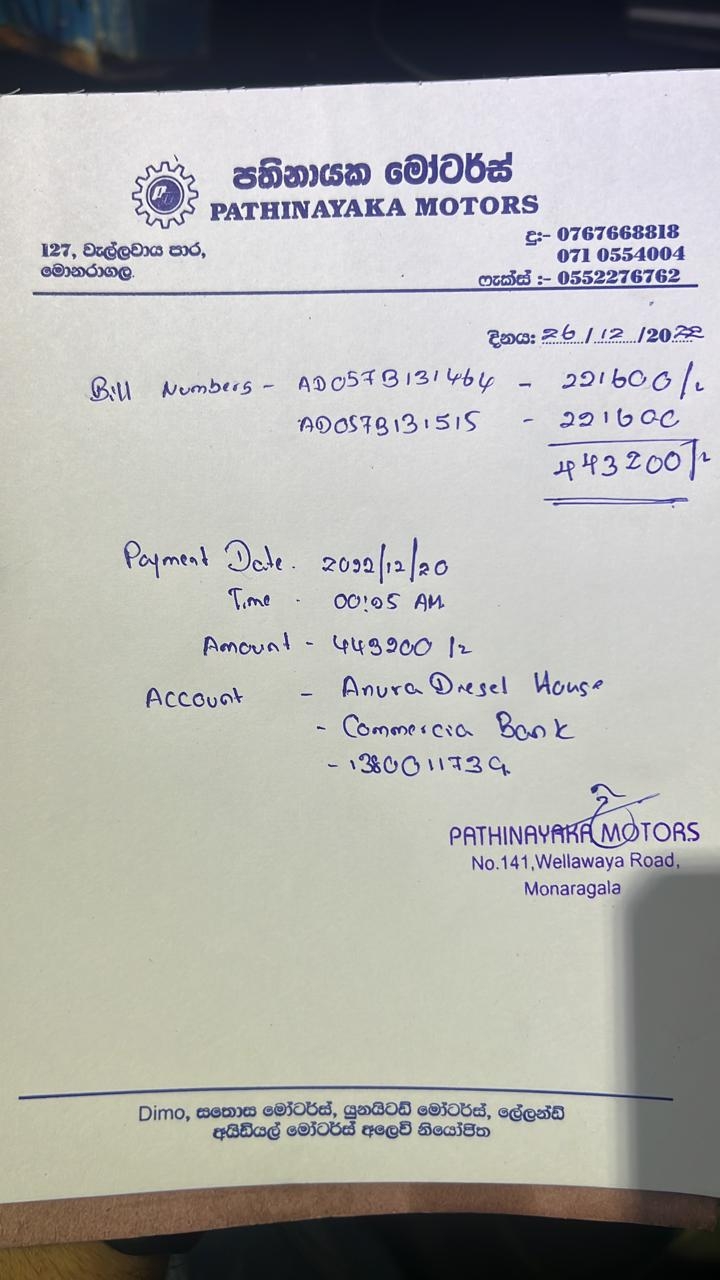 පතිනායක මෝටර්ස්
PATHINAYAKA MOTORS
127, වැල්ලවාය පාර,
මොනරාගල.
දු:- 0767668818
071 0554004
ෆැක්ස් :- 0552276762
දිනය: 26/12/2022
Bill Numbers - AD057B131464 - 221600/-
AD057B131515 - 221600
443200/-
Payment Date. 2022/12/20
Time - 00:05 AM
Amount - 443200/-
Account - Anura Diesel House
- Commercia Bank
- 1380011739
PATHINAYAKA MOTORS
No.141,Wellawaya Road,
Monaragala
Dimo, සතොස මෝටර්ස්, යුනයිටඩ් මෝටර්ස්, ලේලන්ඩ්
අයිඩියල් මෝටර්ස් අලෙවි නියෝජිත